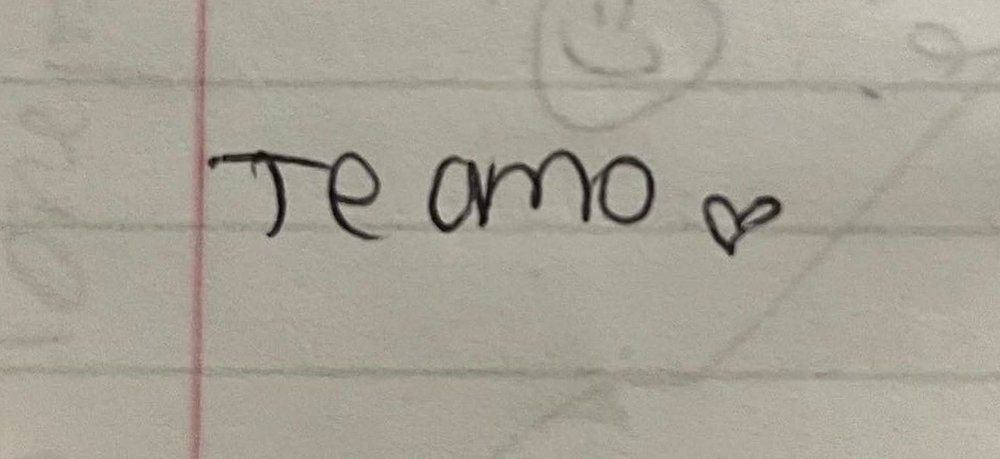 Te amo ♡